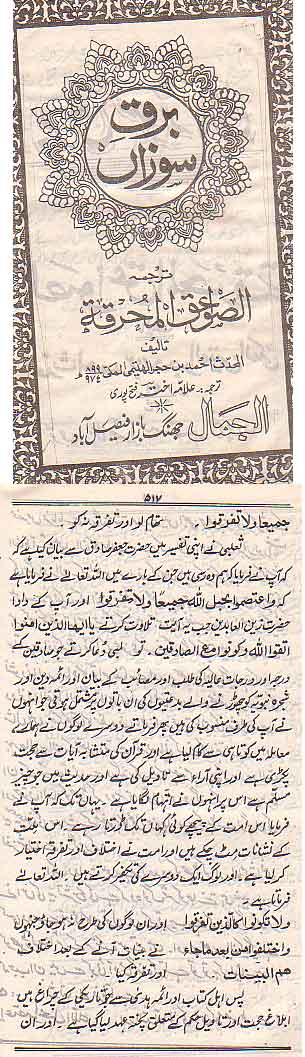 برق
سوزاں
ترجمہ
الصواعق المحرقة
تالیف
المحدث احمد بن حجر الہیتمی المکی ۸۹۹ ۹۷۴ھ
ترجمہ: علامہ اختر فتح پوری
الجمال جھنگ بازار فیصل آباد
۵۱۷
جمیعا ولا تفرقوا۔ تھام لو اور تفرقہ نہ کرو۔
ثعلبی نے اپنی تفسیر میں حضرت جعفر صادق سے بیان کیا ہے کہ
آپ نے فرمایا کہ ہم وہ رسی ہیں جس کے بارے میں اللہ تعالےٰ نے فرمایا ہے
کہ واعتصموا بحبل اللہ جمیعا ولا تفرقوا اور آپ کے دادا
حضرت زین العابدین جب یہ آیت تلاوت کرتے یاایھا الذین امنوا
اتقوا اللہ وکونوا مع الصادقین۔ تو لمبی دعا کرتے جو صادقین کے
درجہ اور درجات عالیہ کی طلب اور مصائب کے بیان اور ائمہ دین اور
شجرہ نبویہ کو چھوڑنے والے بدعتیوں کی ان باتوں پر مشتمل ہوتی جو انہوں
نے آپ کی طرف منسوب کی ہیں پھر فرماتے دوسرے لوگوں نے ہمارے
معاملہ میں کوتاہی سے کام لیا ہے اور قرآن کی متشابہ آیات سے حجت
پکڑی ہے اور اپنی آراء سے تاویل کی ہے اور حدیث میں جو چیز
مسلّم ہے اس پر انہوں نے اتہام لگایا ہے۔ یہاں تک کہ آپ نے
فرمایا اس امت کے پیچھے کوئی کہاں تک دوڑتا رہے۔ اس ملت
کے نشانات مٹ چکے ہیں اور امت نے اختلاف اور تفرقہ اختیار
کر لیا ہے۔ اور لوگ ایک دوسرے کی تکفیر کرتے ہیں۔ اللہ تعالےٰ
فرماتا ہے۔
ولا تکونوا کالذین تفرقوا اور ان لوگوں کی طرح نہ ہو جاؤ جنہوں
واختلفوا من بعد ما جاء نے بینات آنے کے بعد اختلاف
ھم البینات۔ اور تفرقہ کیا
پس اہل کتاب اور ائمہ ہدیٰ سے جو تاریکی کے چراغ ہیں
ابلاغ حجت اور تاویل حکم کے متعلق پختہ عہد لیا گیا ہے۔ اور ان